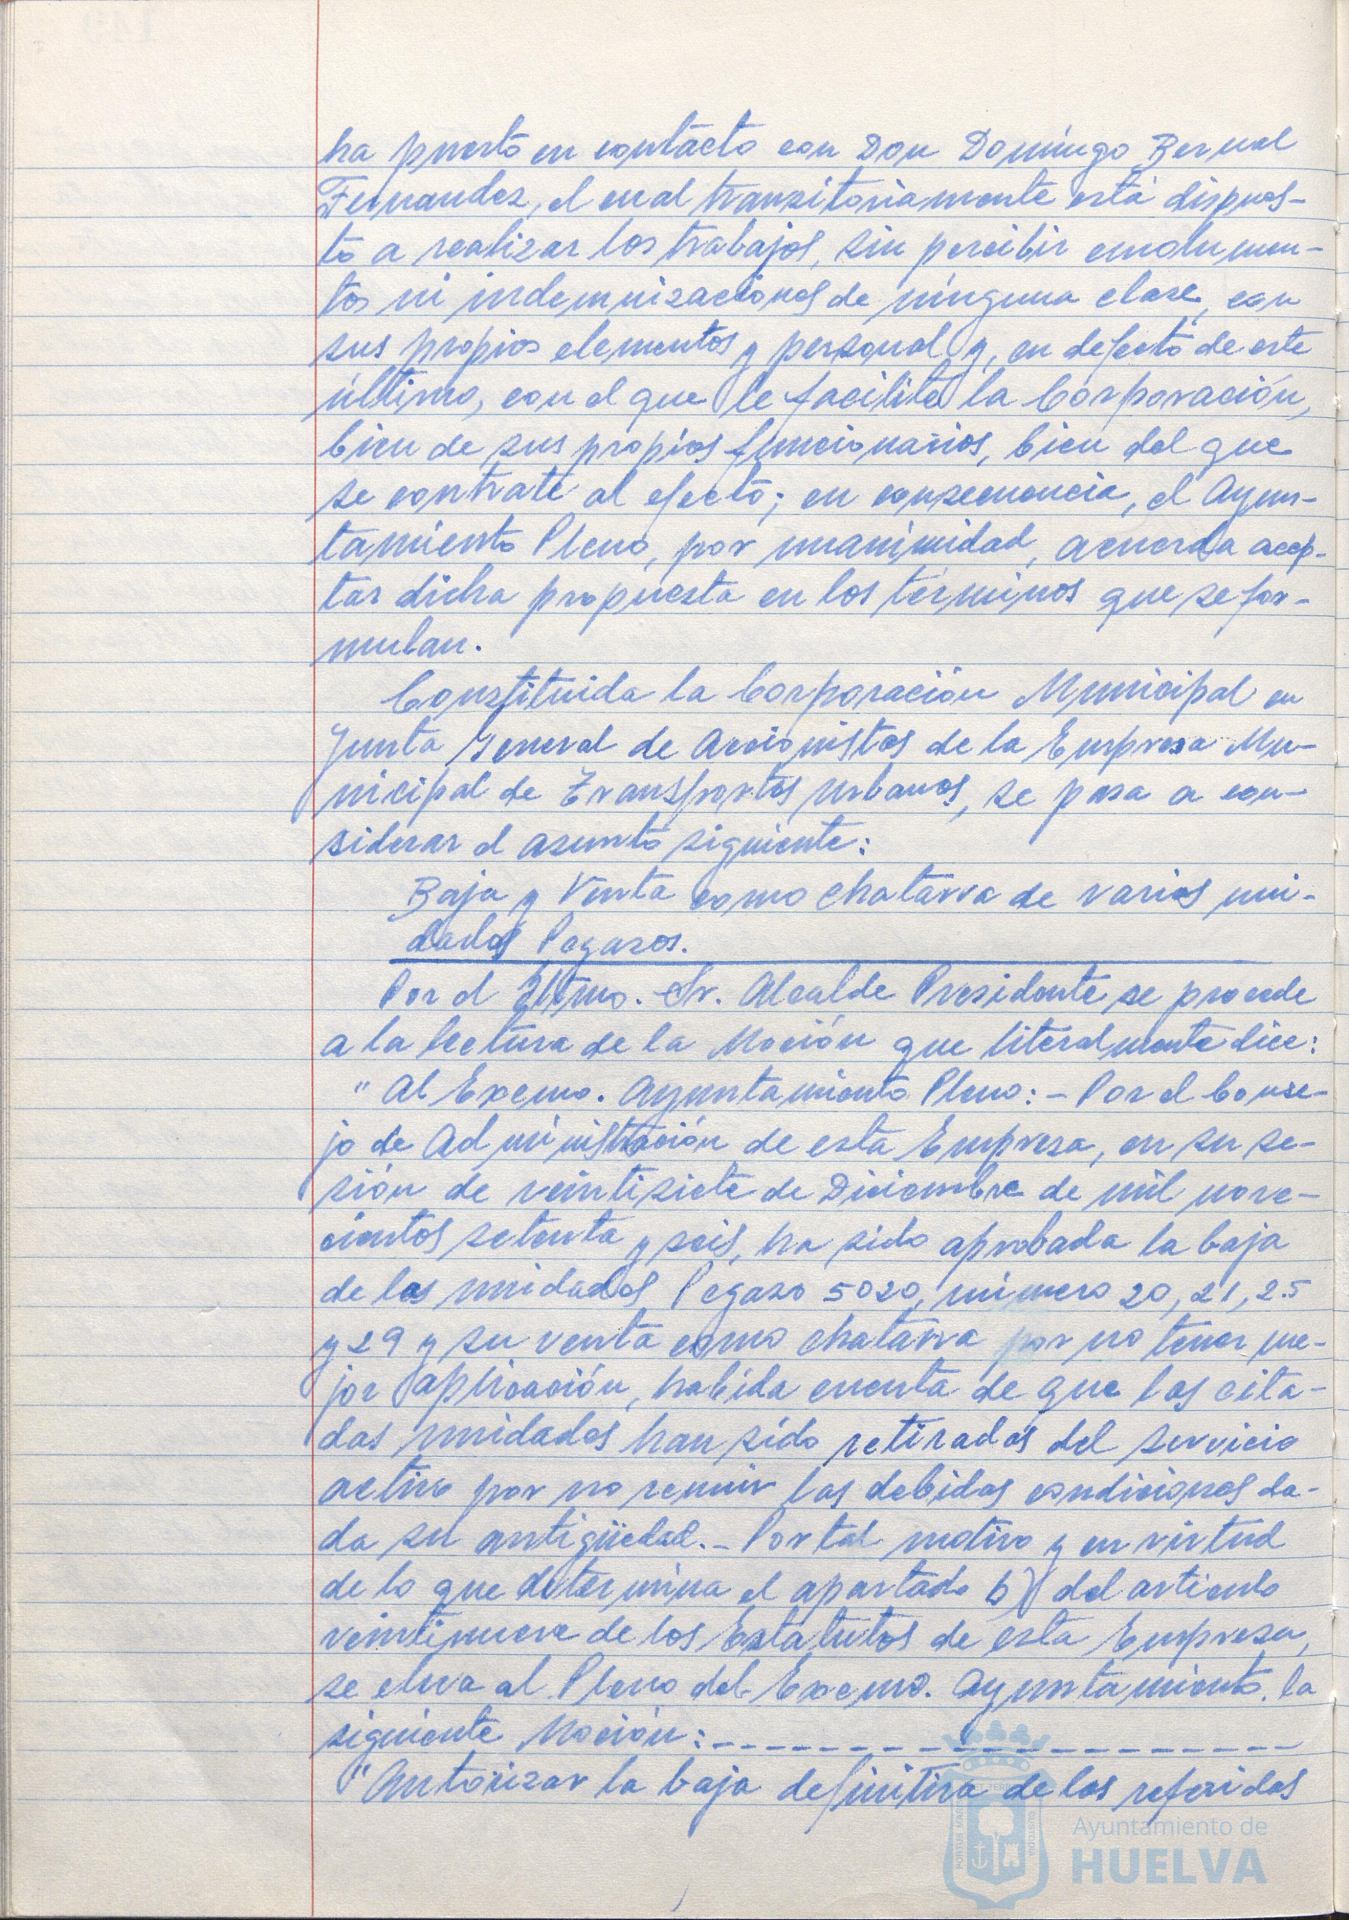 ha puesto en contacto con Don Domingo Bernal
Fernandez, el cual transitoriamente está dispues-
to a realizar los trabajos, sin percibir emolumen-
tos ni indemnizaciones de ninguna clase, con
sus propios elementos y personal y, en defecto de este
último, con el que le facilite la Corporación,
bien de sus propios funcionarios, bien del que
se contrate al efecto; en consecuencia, el Ayun-
tamiento Pleno, por unanimidad, acuerda acep-
tar dicha propuesta en los términos que se for-
mulan.
Constituida la Corporación Municipal en
Junta General de Accionistas de la Empresa Mu-
nicipal de Transportes Urbanos, se pasa a con-
siderar el asunto siguiente:
Baja y Venta como chatarra de varias uni-
dades Pegasos.
Por el Iltmo. Sr. Alcalde Presidente se procede
a la lectura de la Moción que literalmente dice:
" Al Excmo. Ayuntamiento Pleno: - Por el Conse-
jo de Administración de esta Empresa, en su se-
sión de veintisiete de Diciembre de mil nove-
cientos setenta y seis, ha sido aprobada la baja
de las unidades Pegaso 5020, número 20, 21, 25
y 29 y su venta como chatarra por no tener me-
jor aplicación, habida cuenta de que las cita-
das unidades han sido retiradas del servicio
activo por no reunir las debidas condiciones da-
da su antigüedad. - Por tal motivo y en virtud
de lo que determina el apartado b) del artículo
veintinueve de los Estatutos de esta Empresa,
se eleva al Pleno del Excmo. Ayuntamiento, la
siguiente Moción: - - - - - - - - - - - - - - - - - -
"Autorizar la baja definitiva de las referidas
Ayuntamiento de
HUELVA